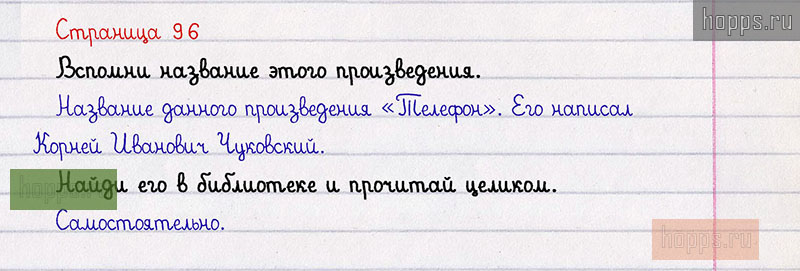 hopps.ru
Страница 96
Вспомни название этого произведения.
Название данного произведения «Телефон». Его написал
Корней Иванович Чуковский.
Найди его в библиотеке и прочитай целиком.
Самостоятельно.
hopps.ru
hopps.ru